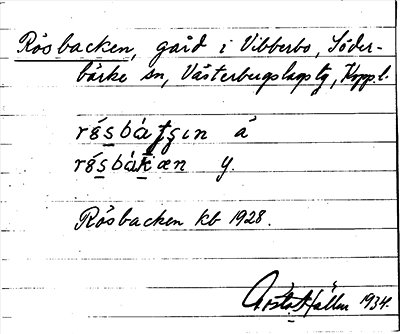 Rösbacken, gård i Vibberbo, Söder-
bärke sn, Västerbergslags tg, Kopp.l.
rö́sbáʈʂın ä
rö́sbákæn y.
Rösbacken kb 1928.
Gösta Hallm 1934.